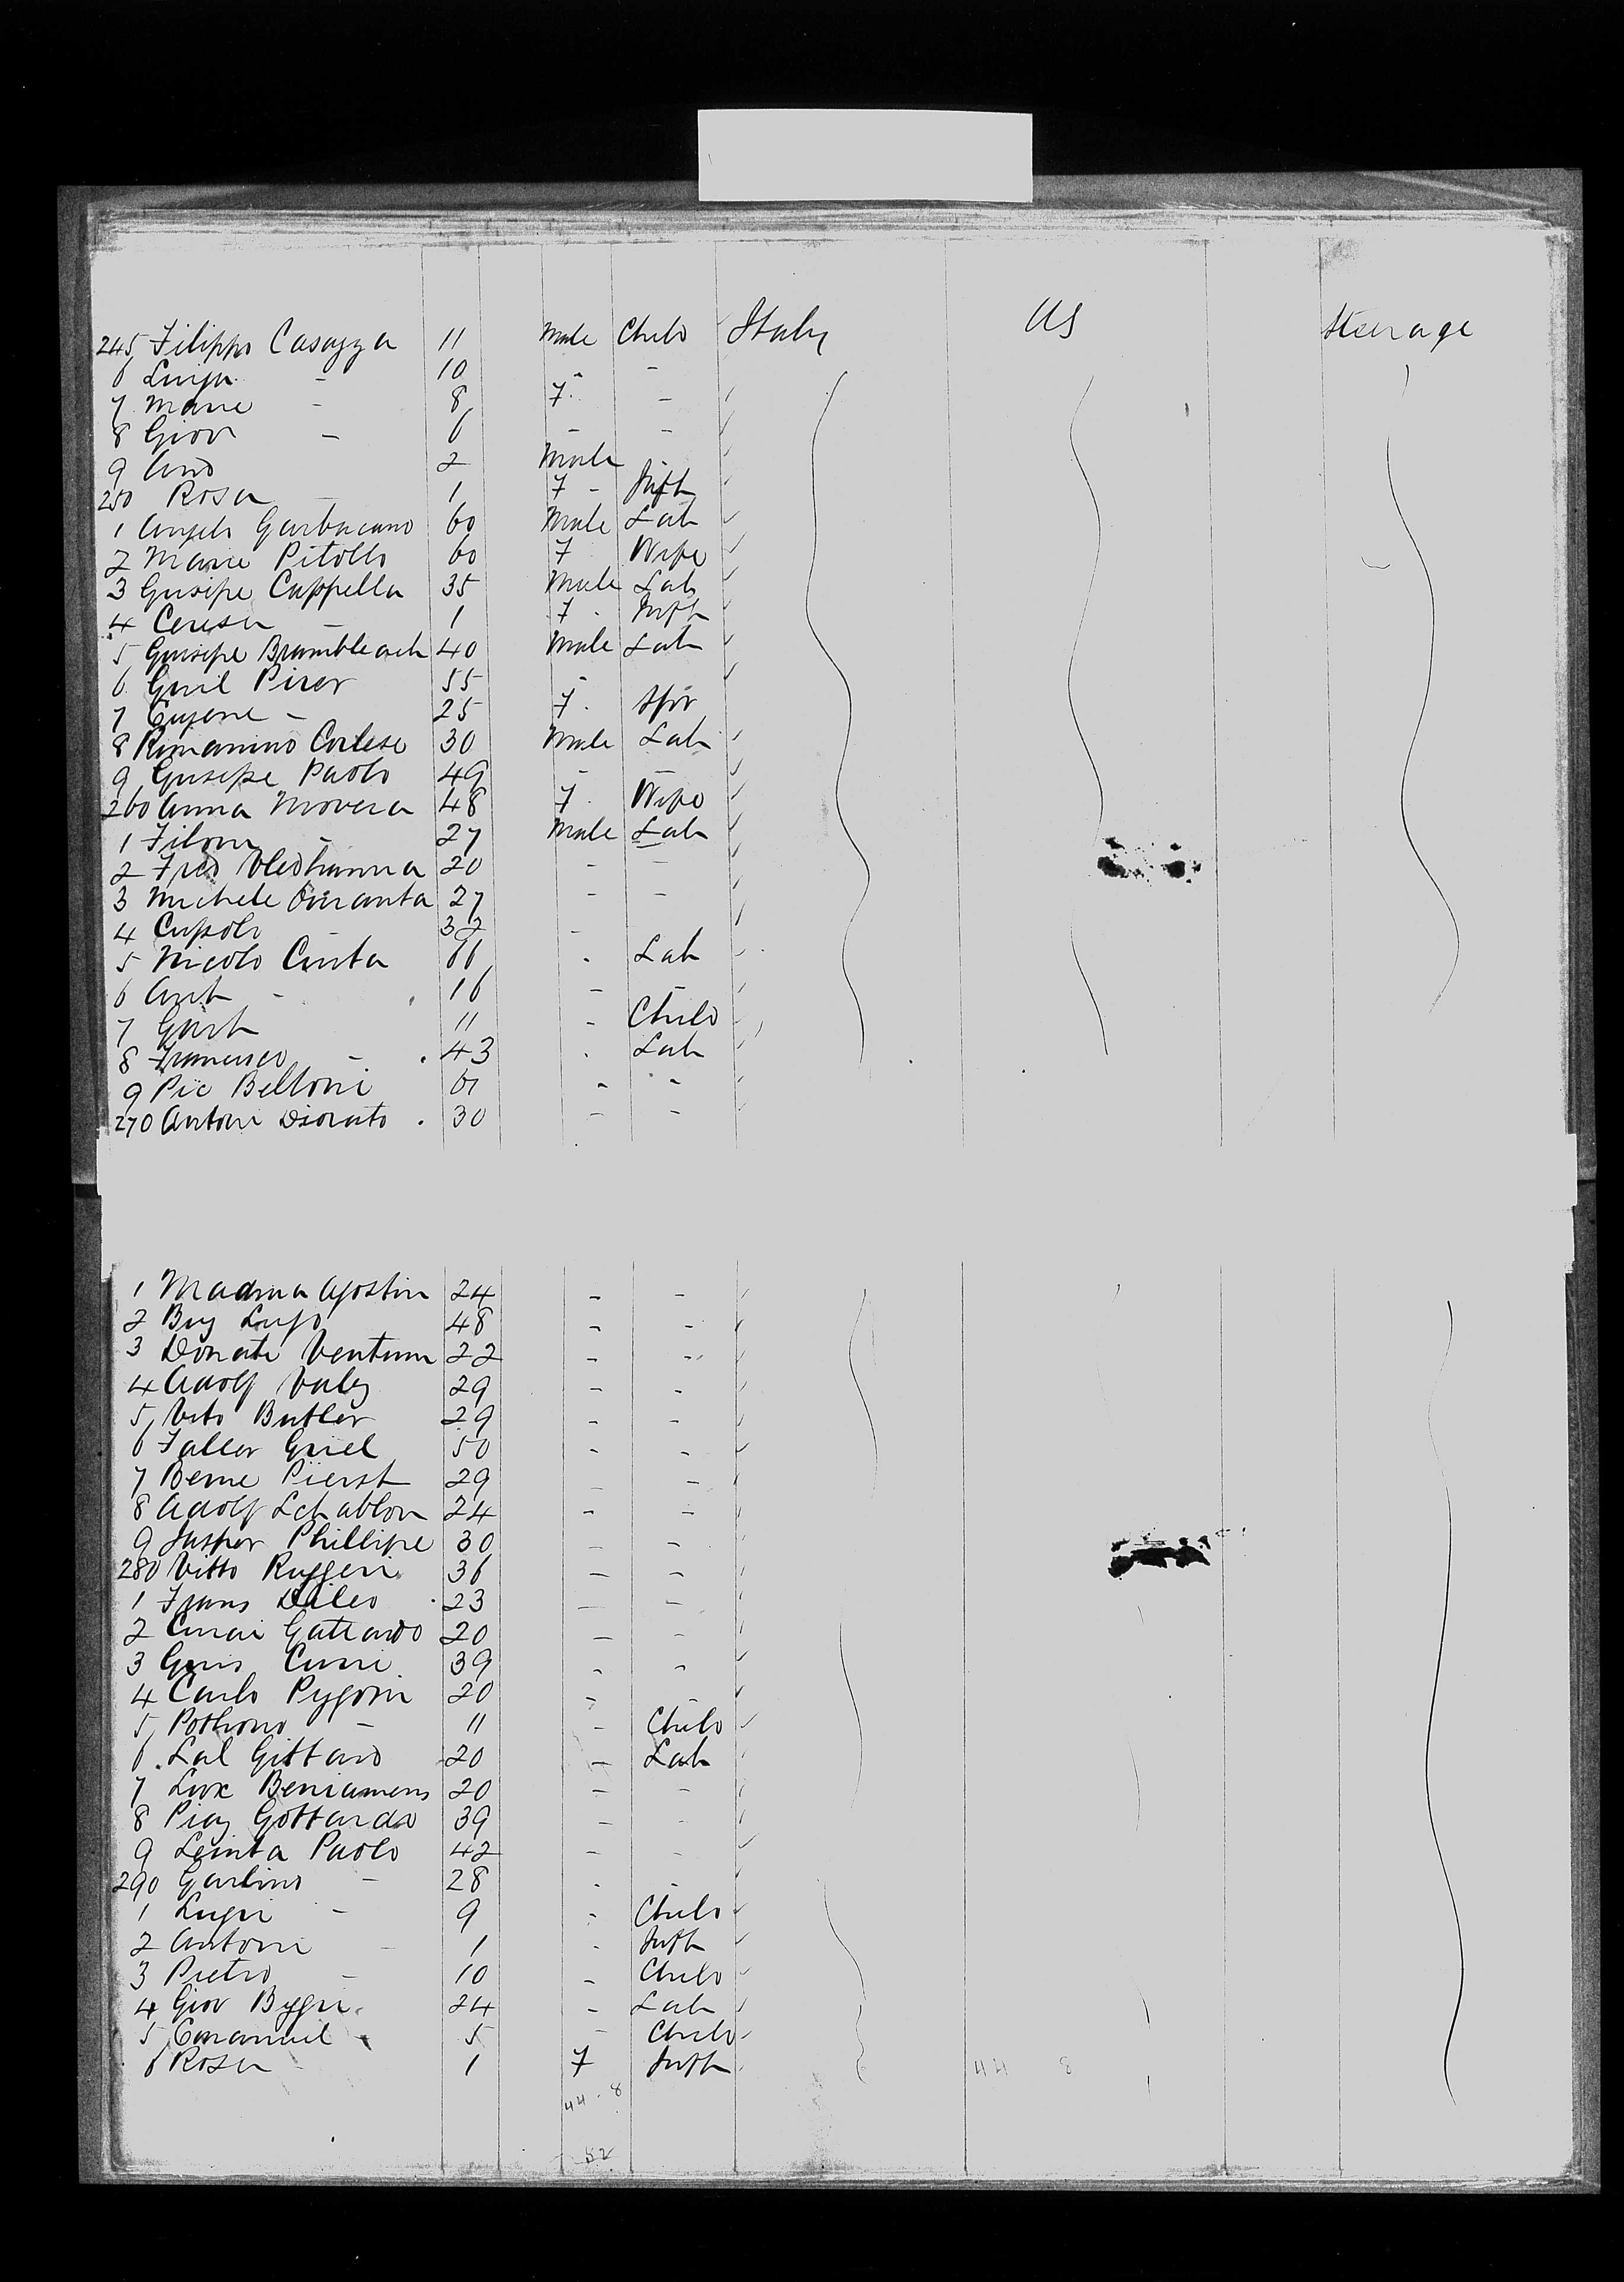 245 Filippo Casazza 11 Male Child Italy US Steerage
6 Luiga - 10 " -
7 Marie - 8 F. -
8 Giov - 6 - -
9 And 2 Male
250 Rosa - 1 F - Inft
1 Angelo Garbacano 60 Male Lab
2 Marie Pitollo 60 F Wife
3 Gusepe Cappella 35 Male Lab
4 Ceresa - 1 F. Inft
5 Guisepe Brambleach 40 Male Lab
6 Guil Piser 55 -
7 Eugene - 25 F. Spr
8 Romanino Cortese 30 Male Lab
9 Gusepe Paolo 49 - -
260 Anna Movera 48 F. Wife
1 Filom - 27 Male Lab
2 Fred 20 - -
3 Michele 27 - -
4 Cupolo - 32 -
5 Nicolo Cinta 66 . Lab
6 Ant - 16 - -
7 11 - Child
8 Francisco - 43 . Lab
9 Pie Belloni 61 - -
270 Antoni Diorato 30 - -
1 Madma Agostin 24 - -
2 48 - -
3 Donati Ventum 22 - -
4 Adolf Valey 29 - -
5 Vito Butler 29 - -
6 Faller Griel 50 - -
7 Berne Pierst 29 - -
8 Adolf Schablon 24 - -
9 Jasper Phillipe 30 - -
280 Vitto Ruggeri 36 - -
1 Frans Daleo 23 - -
2 Gattardo 20 - -
3 39 - -
4 Carlo Pygoni 20 - -
5 - 11 - Child
6 Sal Gittard 20 - Lab
7 Beniamens 20 - -
8 Piay Gottardo 39 - -
9 Leinta Paolo 42 - -
290 Garlino - 28 - -
1 Luigi - 9 - Child
2 Antoni - 1 - Inft
3 Pietro - 10 - Child
4 Giov 24 - Lab
5 Emanuel - 5 - Child
6 Rosa - 1 F Inft 44 8
44 - 8
52